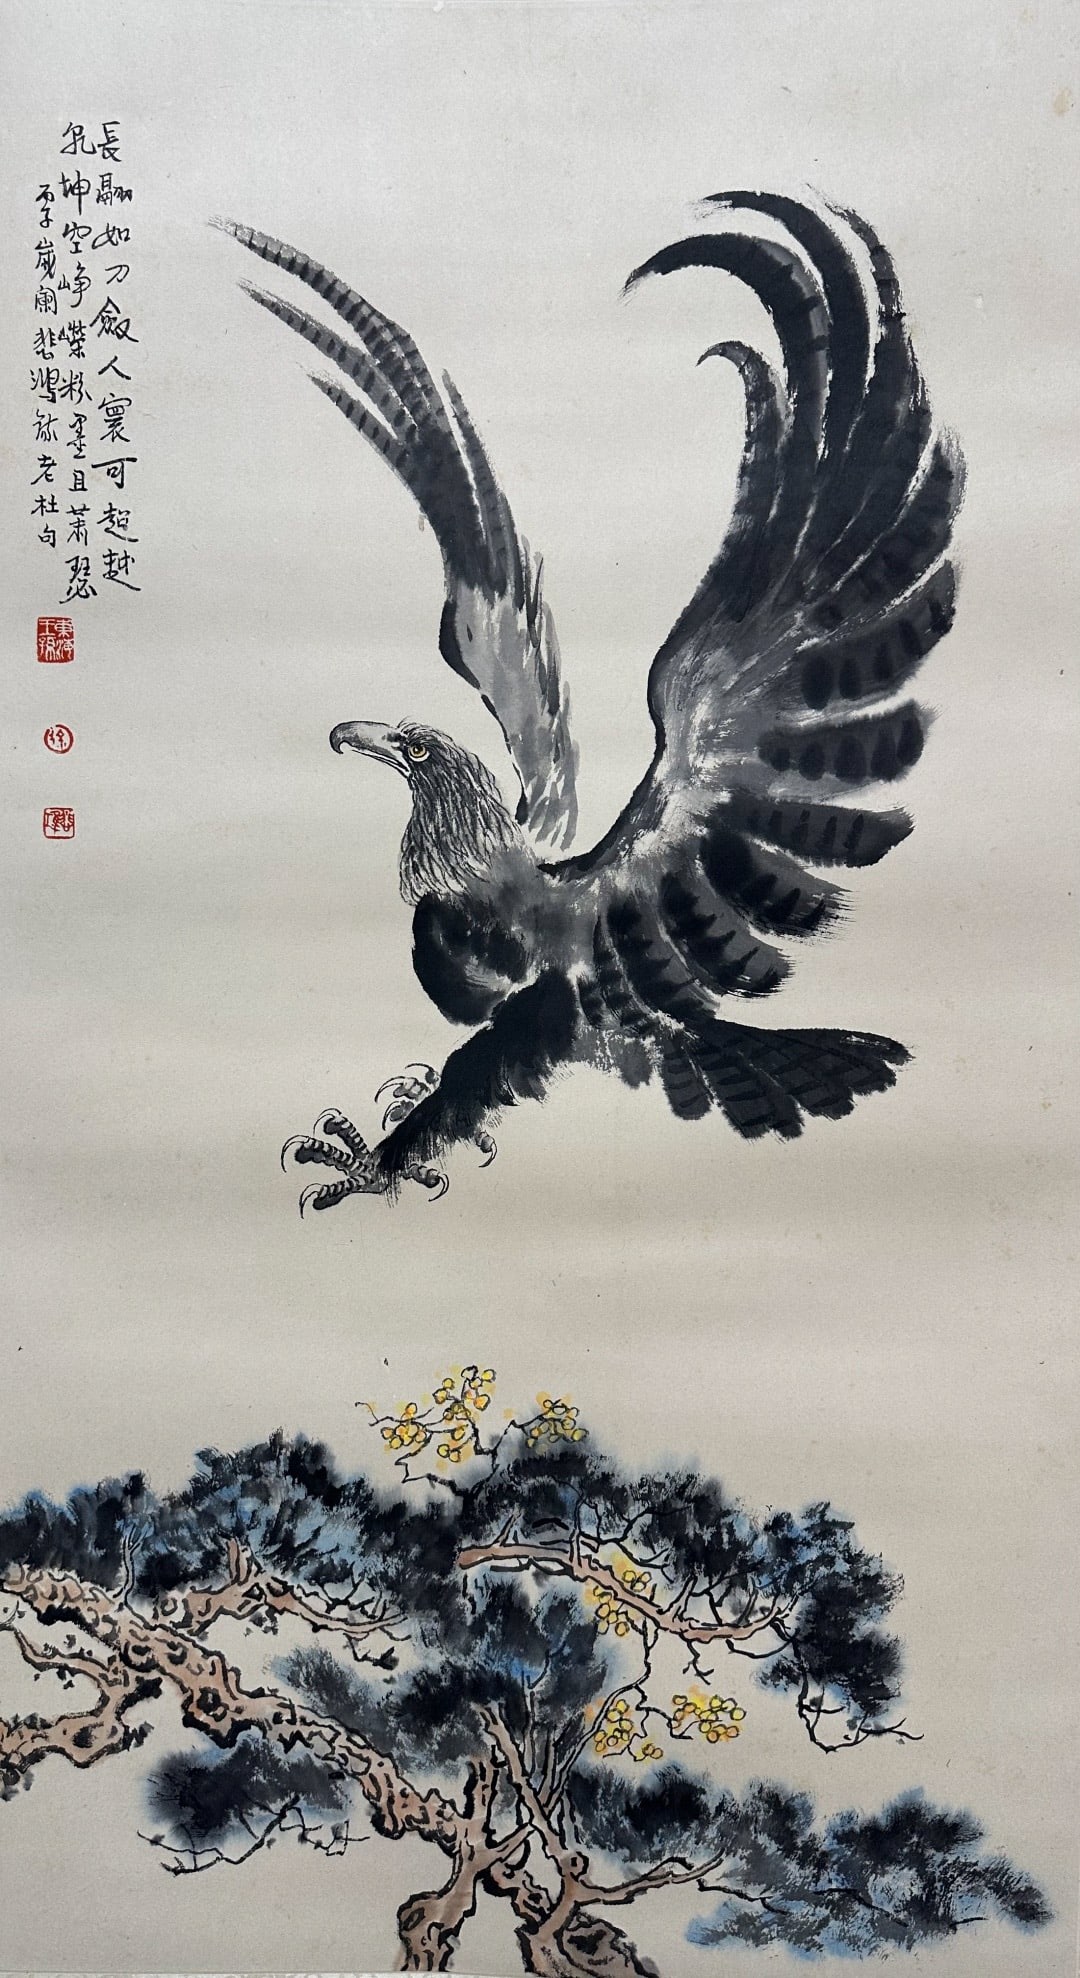 長翮如刀劍人寰可超越
乾坤空崢嶸粉墨且蕭瑟
丙子歲闌悲鴻錄老杜句
東海王孫
徐
悲鴻